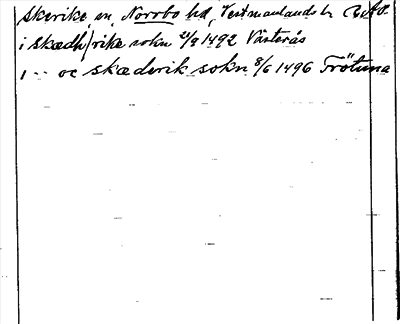 Skerike, sn, Norrbo hd, Vestmanlands l.
i skædh/rike sokn 21/9 1492 Västerås
i -- oc skæderik sokn 8/6 1496 Frötuna